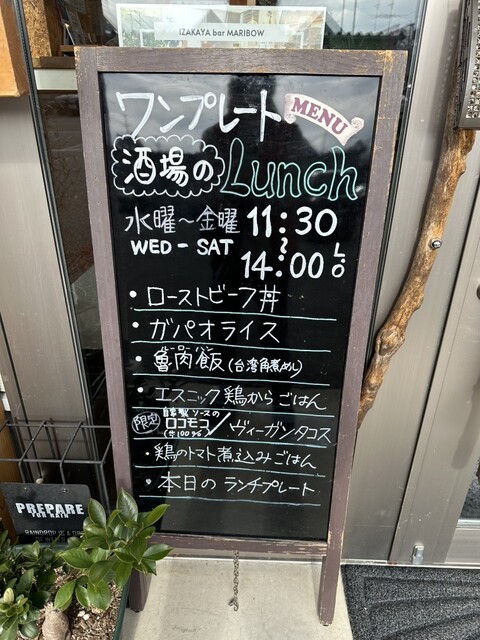 IZAKAYA bar MARIBOW
ワンプレート MENU
酒場の Lunch
水曜～金曜 11:30
WED - SAT ～
14:00 LO
・ローストビーフ丼
・ガパオライス
・魯肉飯(台湾角煮めし)
・エスニック鶏からごはん
限定 自家製ソースの ロコモコ / ヴィーガンタコス
・鶏のトマト煮込みごはん
・本日の ランチプレート
PREPARE
FOR RAIN